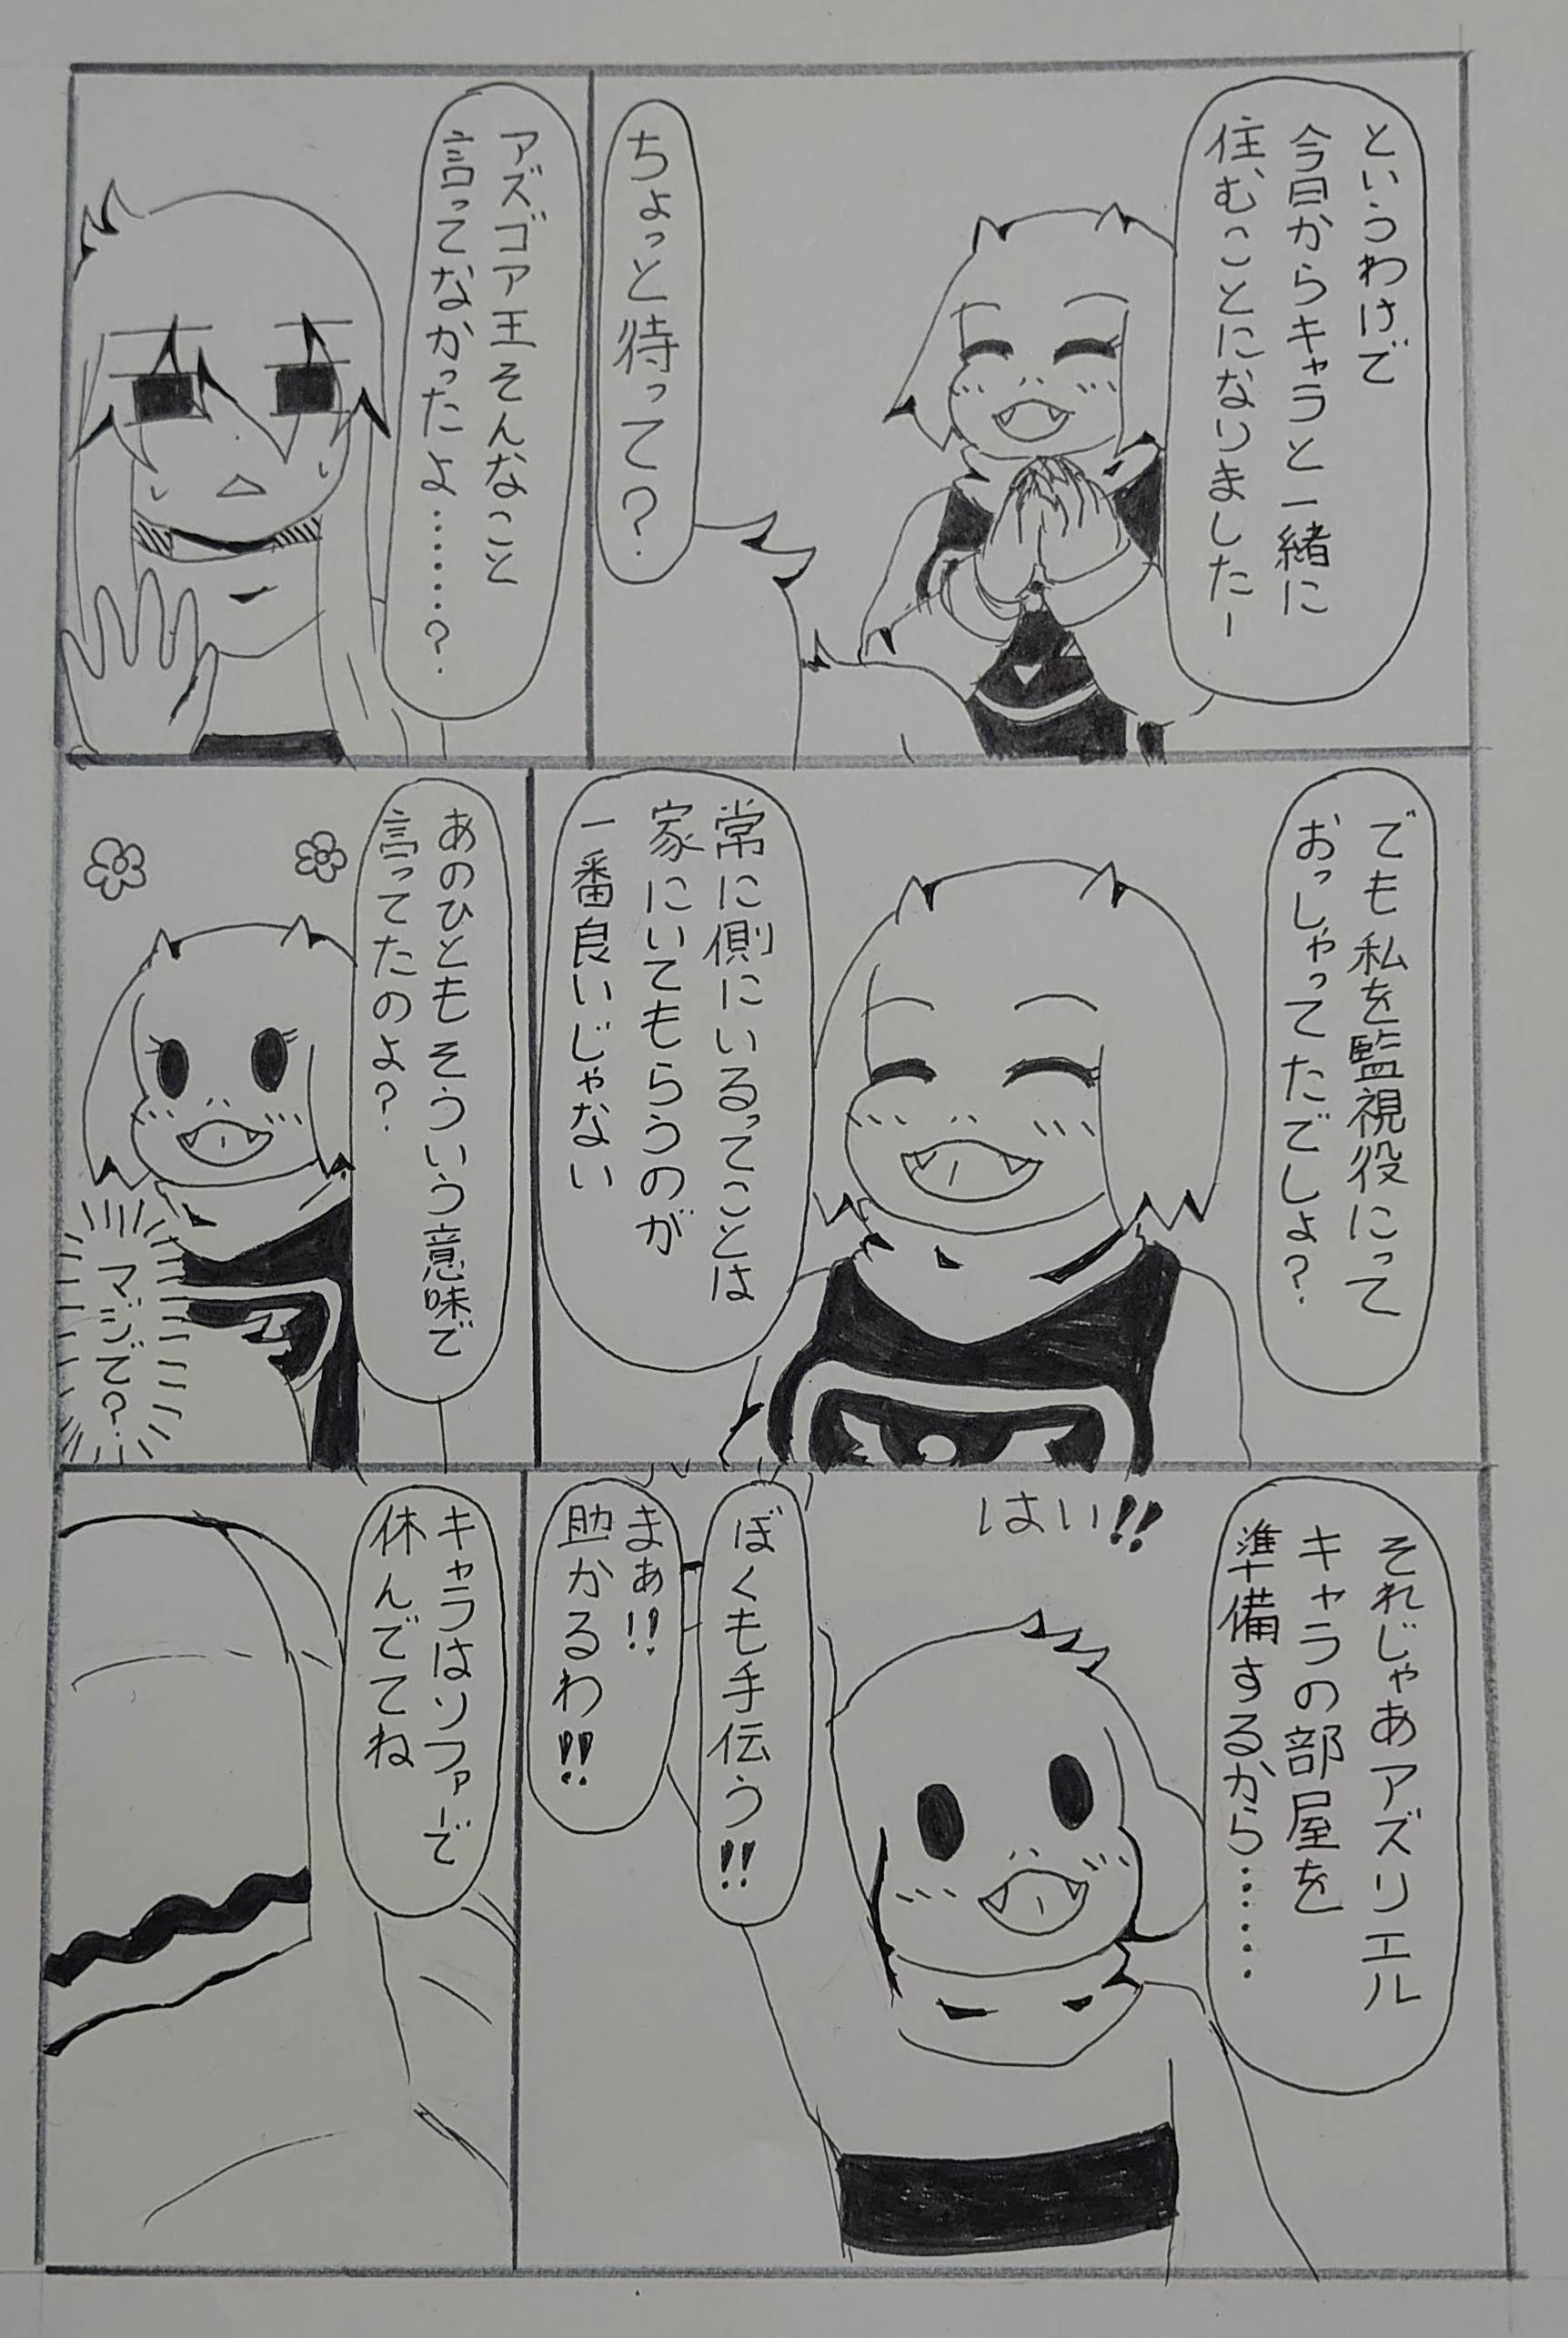 というわけで
今日からキャラと一緒に
住むことになりましたー
ちょっと待って?
アズゴア王そんなこと
言ってなかったよ………?
でも私を監視役にって
おっしゃってたでしょ?
常に側にいるってことは
家にいてもらうのが
一番良いじゃない
あのひともそういう意味で
言ってたのよ?
マジで?
それじゃあアズリエル
キャラの部屋を
準備するから……
はい!!
ぼくも手伝う!!
まぁ!!
助かるわ!!
キャラはソファーで
休んでてね